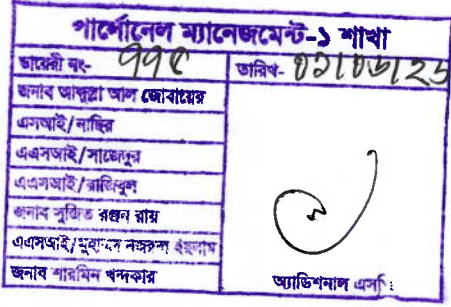 পার্সোনেল ম্যানেজমেন্ট-১ শাখা
ডায়েরী নং- ৭৭৫
তারিখ-
জনাব আব্দুল্লা আল জোবায়ের
এসআই/নাছির
এএসআই/সাজেদুর
এএসআই/রাজিবুল
জনাব সুজিত রঞ্জন রায়
এএসআই/মুহাম্মদ নজরুল ইসলাম
জনাব শারমিন খন্দকার
অ্যাডিশনাল এসপি